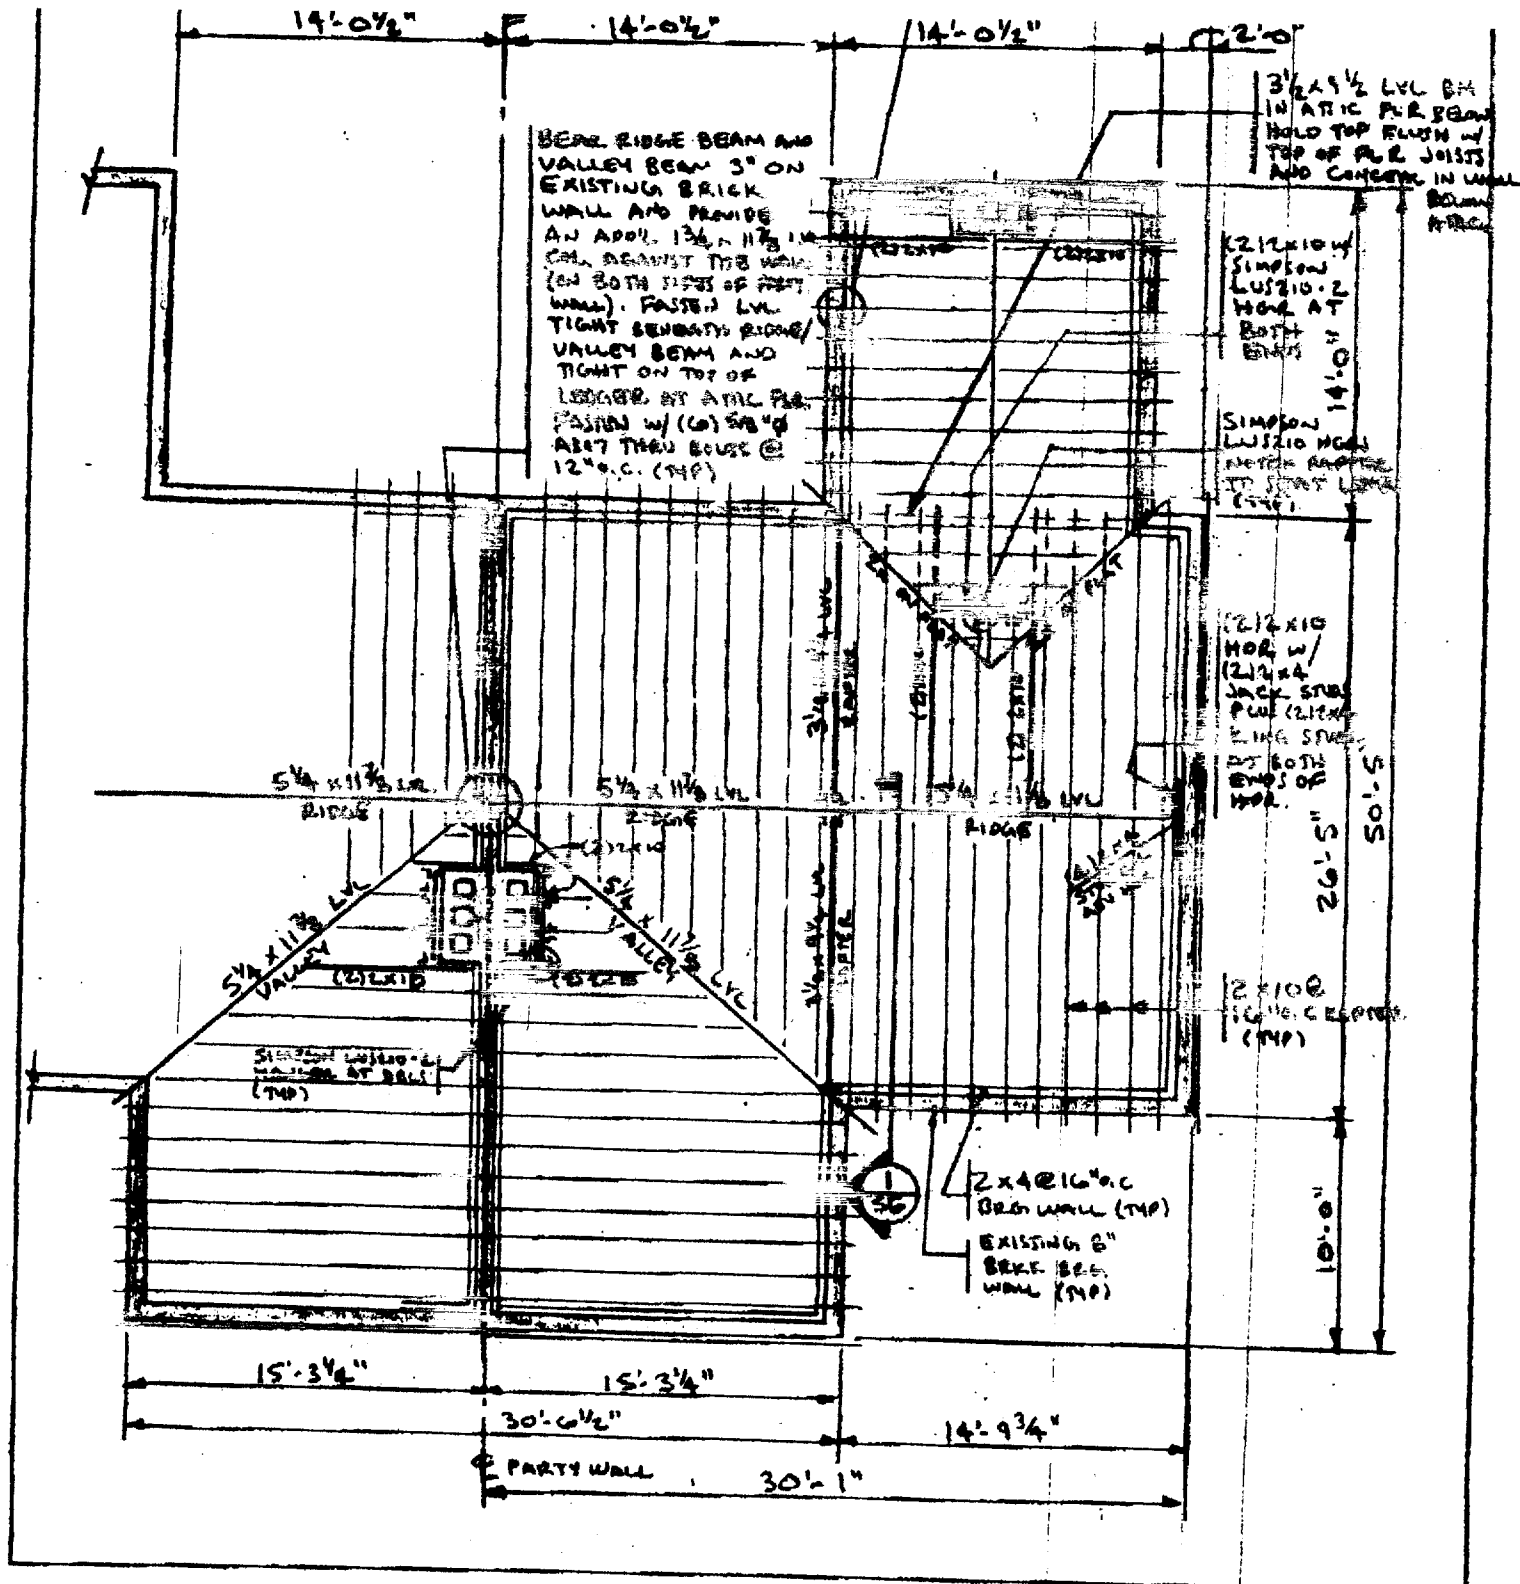 14'-0½"
14'-0½"
14'-0½"
2'-0"
3½ x 9½ LVL BM
IN ATTIC FLR BELOW
HOLD TOP FLUSH W/
TOP OF FLR JOISTS
AND CONCEAL IN WALL
BELOW
ATTIC
BEAR RIDGE BEAM AND
VALLEY BEAM 3" ON
EXISTING BRICK
WALL AND PROVIDE
AN ADD'L 1¾ x 11⅞ LVL
COL. AGAINST THE WALL
(ON BOTH SIDES OF
WALL). FASTEN LVL
TIGHT BENEATH RIDGE/
VALLEY BEAM AND
TIGHT ON TOP OF
LEDGER AT ATTIC FLR.
FASTEN W/ (6) 5/8"Ø
A307 THRU BOLTS @
12" O.C. (TYP)
(2)2x10
(2)2x10
(2)2x10 W/
SIMPSON
LUS210-2
HGR AT
BOTH
ENDS
14'-0"
SIMPSON
LUS210 HGR
NOTCH RAFTER
(TYP).
(2)2x10
(2)2x10
HDR W/
(2)2x4
JACK STUDS
PLUS (2)2x4
KING STUDS
AT BOTH
ENDS OF
HDR.
RAFTER
5¼ x 11⅞ LVL
RIDGE
5¼ x 11⅞ LVL
RIDGE
LVL
RIDGE
(2)2x10
26'-5"
50'-5"
5¼ x 11⅞ LVL
VALLEY
5¼ x 11⅞ LVL
VALLEY
(2)2x10
(2)2x10
RAFTER
2x10@
16" O.C RAFTER
(TYP)
SIMPSON LUS210-2
HANGER AT BRGS
(TYP)
1
S6
2x4@16"O.C
BRG WALL (TYP)
EXISTING 8"
BRICK BRG.
WALL (TYP)
10'-0"
15'-3¼"
15'-3¼"
30'-6½"
14'-9¾"
℄ PARTY WALL
30'-1"